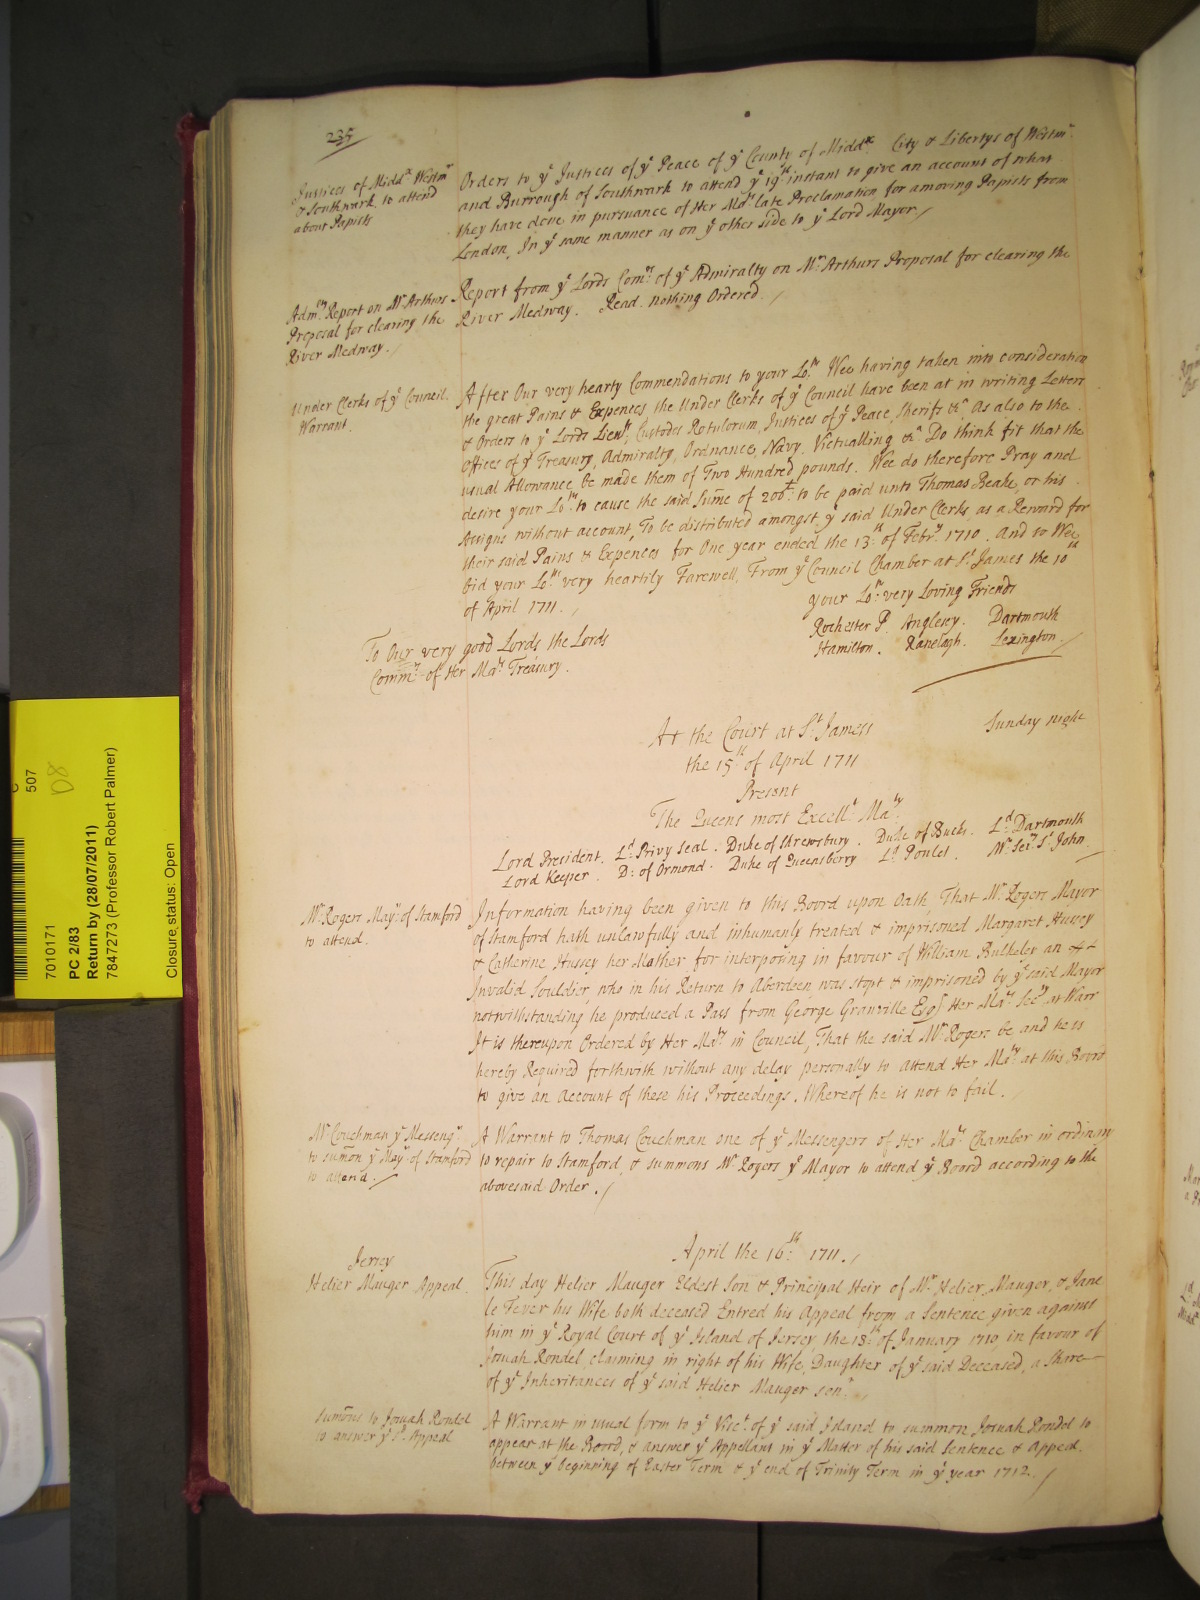 235
Justices of Midd.x Westm.r
& Southwark to attend
about Papists
Orders to y.e Justices of y.e Peace of y.e County of Midd.x City & Libertys of Westm.r
and Burrough of Southwark to attend y.e 19.th instant to give an account of what
they have done in pursuance of Her Ma.ts late Proclamation for amoving Papists from
London, In y.e same manner as on y.e other side to y.e Lord Mayor /
Adm.ty Report on Mr. Arthurs
Proposal for clearing the
River Medway. /
Report from y.e Lords Com.rs of y.e Admiralty on Mr. Arthurs Proposal for clearing the
River Medway. Read. nothing Ordered. /
Under Clerks of y.e Council.
Warrant.
After Our very hearty Commendations to your Lo.pp Wee having taken into consideration
the great Pains & Expences, the Under Clerks of y.e Council have been at in writing Letters
& Orders to y.e Lords Lieu.ts, Custodes Rotulorum, Justices of y.e Peace, Sherifs &c.a As also to the
Offices of y.e Treasury, Admiralty, Ordnance, Navy, Victualling &c.a Do think fit that the
usual Allowance be made them of Two Hundred pounds. Wee do therefore Pray and
desire your Lo.pp to cause the said Sume of 200.£ to be paid unto Thomas Beake, or his
Assigns without account, To be distributed amongst y.e said Under Clerks, as a Reward for
their said Pains & Expences for One year ended the 13.th of Febr.y 1710. And so Wee
bid your Lo.pp very heartily Farewell, From y.e Council Chamber at S.t James the 10.th
of April 1711. /
your Lo.pps very Loving Friends
Rochester P. Anglesey. Dartmouth
Hamilton. Ranelagh. Lexington. /
To Our very good Lords the Lords
Comm.rs of Her Ma.ts Treasury.
Sunday night
At the Court at S.t James's
the 15.th of April 1711
Present
The Queens most Excell.t Ma.ty
Lord President. L.d Privy Seal. Duke of Shrewsbury. Duke of Bucks. L.d Dartmouth
Lord Keeper. D: of Ormond. Duke of Queensberry L.d Poulet. Mr. Sec.ry S.t John
Mr. Rogers May.r of Stamford
to attend.
Information having been given to this Board upon Oath, That Mr. Rogers Mayor
of Stamford hath unlawfully and inhumanly treated & imprisoned Margaret Hussey
& Catherine Hussey her Mother, for interposing in favour of William Bulkeley an
Invalid Souldier, who in his Return to Aberdeen was stopt & imprisoned by y.e said Mayor
notwithstanding he produced a Pass from George Granville Esq.r Her Ma.ts Sec.ry at Warr
It is thereupon Ordered by Her Ma.ty in Council, That the said Mr. Rogers be and he is
hereby Required forthwith without any delay personally to attend Her Ma.ty at this Board
to give an Account of these his Proceedings. Whereof he is not to fail. /
Mr. Couchman y.e Messeng.r
to sumon y.e May.r of Stamford
to attend. /
A Warrant to Thomas Couchman one of y.e Messengers of Her Ma.ts Chamber in ordinary
to repair to Stamford, & summons Mr. Rogers y.e Mayor to attend y.e Board according to the
abovesaid Order. /
April the 16.th 1711. /
Jersey
Helier Mauger Appeal.
This day Helier Mauger Eldest Son & Principal Heir of Mr. Helier Mauger, & Jane
le Fever his Wife both deceased Entred his Appeal from a Sentence given against
him in y.e Royal Court of y.e Island of Jersey, the 18.th of January 1710, in favour of
Josuah Rondel, claiming in right of his Wife, Daughter of y.e said Deceased, a Share
of y.e Inheritances of y.e said Helier Mauger sen.r /
Sumons to Josuah Rondel
to answer y.e s.d Appeal
A Warrant in usual form to y.e Visc.t of y.e said Island to summon Josuah Rondel to
appear at the Board, & answer y.e Appellant in y.e Matter of his said Sentence & Appeal,
between y.e beginning of Easter Term & y.e end of Trinity Term in y.e year 1712. /
507
D8
7010171
PC 2/83
Return by (28/07/2011)
7847273 (Professor Robert Palmer)
Closure status: Open